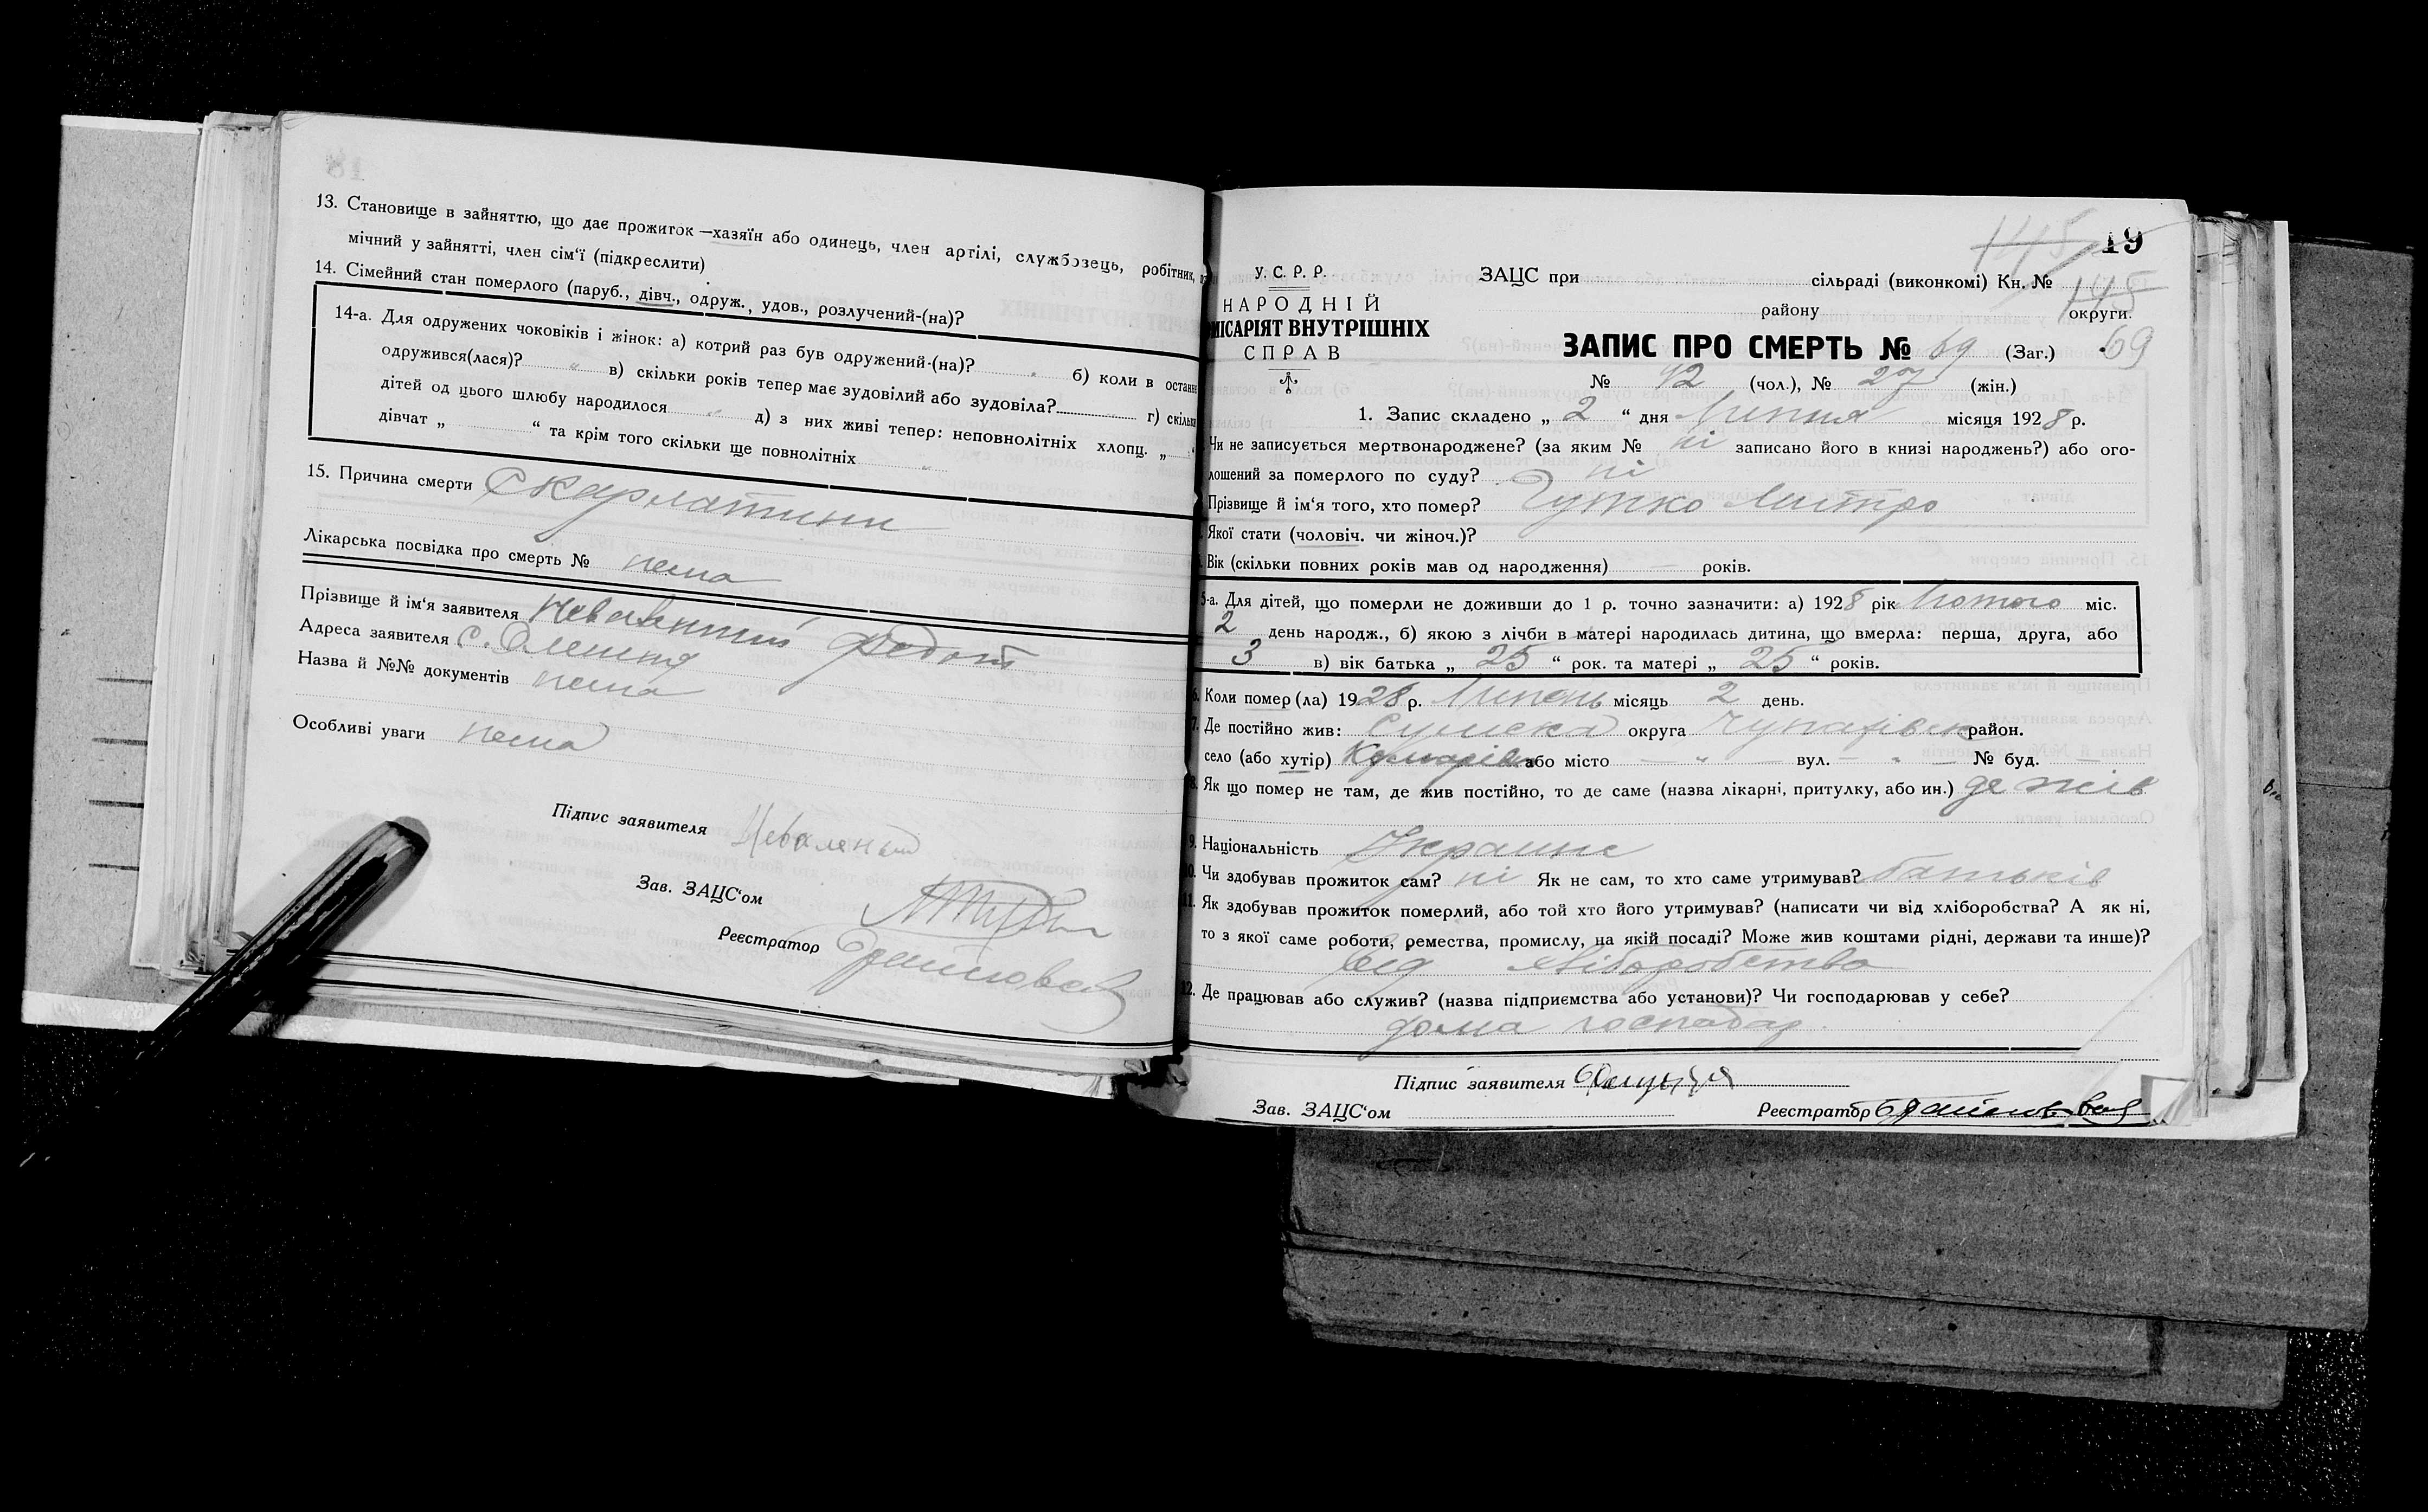 13. Становище в зайняттю, що дає прожиток —хазяїн або одинець, член артілі, службовець, робітник,
мічний у зайнятті, член сім'ї (підкреслити)
14. Сімейний стан померлого (паруб., дівч., одруж., удов., розлучений-(на)?
14-а. Для одружених чоковіків і жінок: а) котрий раз був одружений-(на)? б) коли в останнє
одружився(лася)? „ в) скільки років тепер має зудовілий або зудовіла? г) скільки
дітей од цього шлюбу народилося „ д) з них живі тепер: неповнолітніх хлопц. „
дівчат „ “ та крім того скільки ще повнолітніх „
15. Причина смерти Скарлатини
Лікарська посвідка про смерть № нема
Прізвище й ім'я заявителя Федот
Адреса заявителя с.
Назва й №№ документів нема
Особливі уваги нема
Підпис заявителя
Зав. ЗАЦС'ом
Реєстратор
145 19
У. С. Р. Р.
НАРОДНІЙ
МІСАРІЯТ ВНУТРІШНІХ
СПРАВ
ЗАЦС при сільраді (виконкомі) Кн. № 145
району округи.
ЗАПИС ПРО СМЕРТЬ № 69 (Заг.) 69
№ 42 (чол.), № 27 (жін.)
1. Запис складено „ 2 “ дня Липня місяця 1928 р.
Чи не записується мертвонароджене? (за яким № ні записано його в книзі народжень?) або ого-
лошений за померлого по суду? ні
Прізвище й ім'я того, хто помер? Гутко Митро
Якої стати (чоловіч. чи жіноч.)?
Вік (скільки повних років мав од народження) — років.
5-а. Для дітей, що померли не доживши до 1 р. точно зазначити: а) 1928 рік Лютого міс.
2 день народж., б) якою з лічби в матері народилась дитина, що вмерла: перша, друга, або
3 в) вік батька „ 25 “ рок. та матері „ 25 “ років.
6. Коли помер (ла) 1928 р. Липень місяць 2 день.
7. Де постійно жив: Сумська округа район.
село (або хутір) або місто — „ — вул. — „ — № буд. —
8. Як що помер не там, де жив постійно, то де саме (назва лікарні, притулку, або ин.) де жив
9. Національність Украинс
10. Чи здобував прожиток сам? ні Як не сам, то хто саме утримував? батьків
11. Як здобував прожиток померлий, або той хто його утримував? (написати чи від хліборобства? А як ні,
то з якої саме роботи, ремества, промислу, на якій посаді? Може жив коштами рідні, держави та инше)?
від хліборобства
12. Де працював або служив? (назва підприємства або установи)? Чи господарював у себе?
дома господар
Підпис заявителя
Зав. ЗАЦС'ом Реєстратор